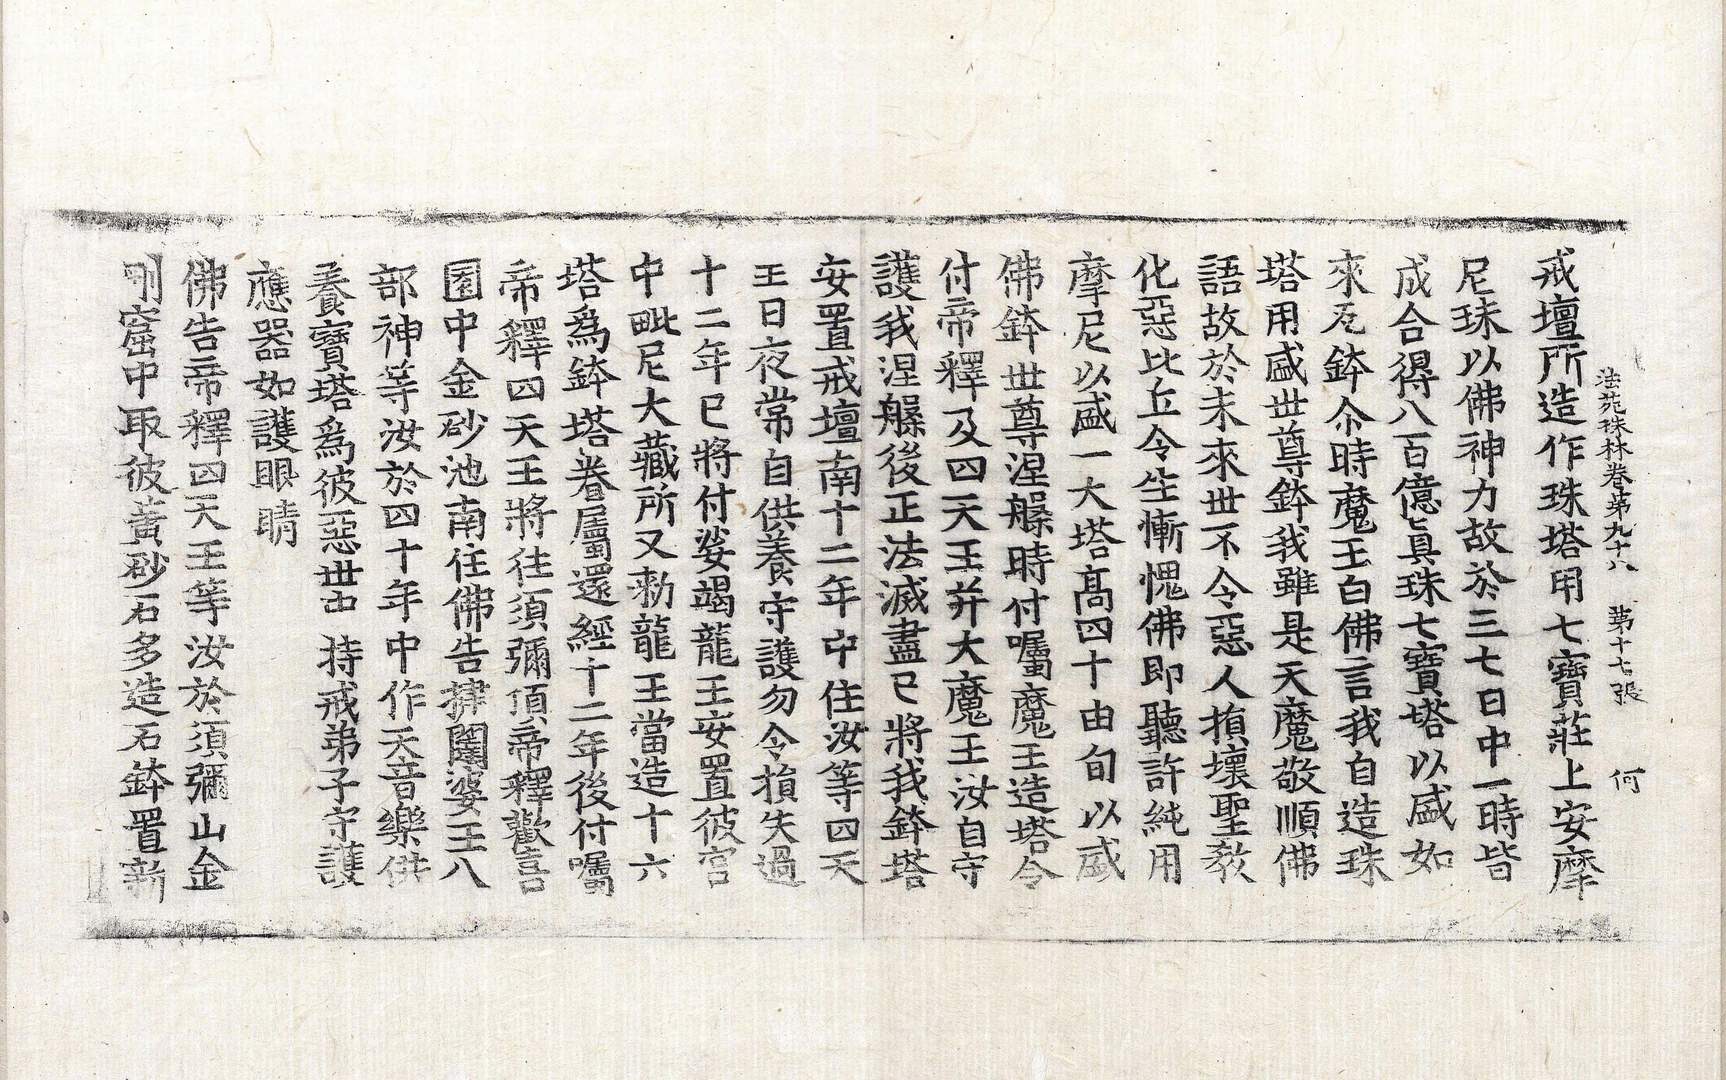 法苑珠林卷第九十八 第十七張 何
戒壇所造作珠塔用七寶莊上安摩
尼珠以佛神力故於三七日中一時皆
成合得八百億真珠七寶塔以盛如
來瓦鉢尒時魔王白佛言我自造珠
塔用盛世尊鉢我雖是天魔敬順佛
語故於未來世不令惡人損壞聖教
化惡比丘令生慚愧佛即聽許純用
摩尼以盛一大塔高四十由旬以盛
佛鉢世尊涅槃時付囑魔王造塔令
付帝釋及四天王并大魔王汝自守
護我涅槃後正法滅盡已將我鉢塔
安置戒壇南十二年中住汝等四天
王日夜常自供養守護勿令損失過
十二年已將付娑竭龍王安置彼宮
中毗尼大藏所又勑龍王當造十六
塔爲鉢塔眷屬還經十二年後付囑
帝釋四天王將往須彌頂帝釋歡喜
園中金砂池南住佛告揵闥婆王八
部神等汝於四十年中作天音樂供
養寶塔爲彼惡世中持戒弟子守護
應器如護眼睛
佛告帝釋四天王等汝於須彌山金
剛窟中取彼黃砂石多造石鉢置新